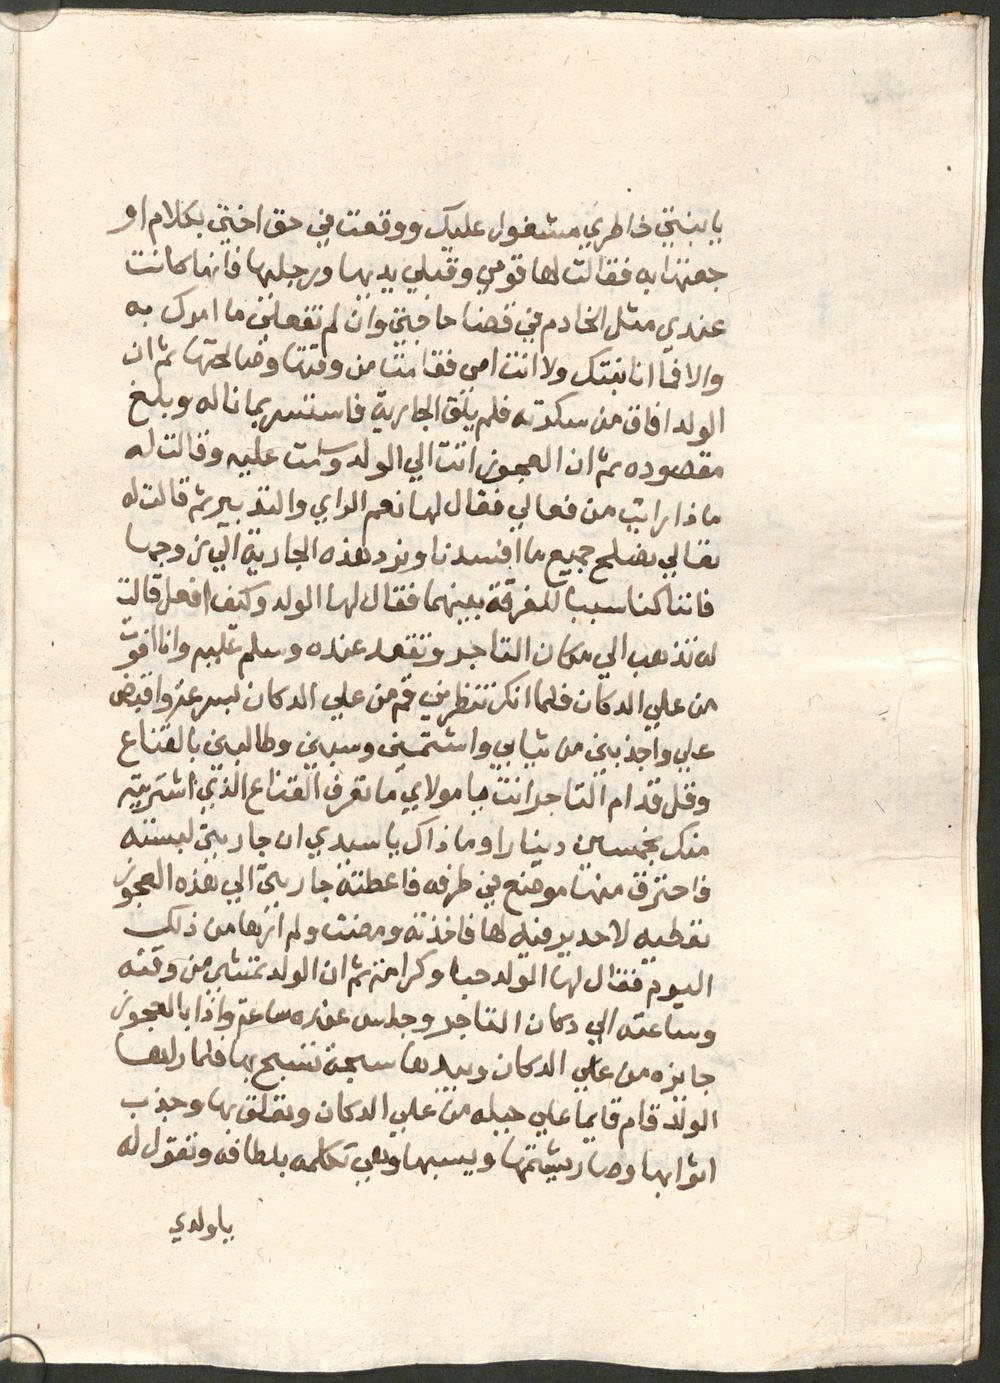 يا بنيتي خاطري مشغول عليك ووقعت في حق اختي بكلام او
جعتها به فقالت لها قومي وقبلي يديها ورجليها فانها كانت
عندي مثل الخادم في قضا حاجتي وان لم تفعلي ما امرك به
والا فما انا بنتك ولا انت امي فقامت من وقتها وصالحتها ثم ان
الولد افاق من سكرته فلم يلق الجارية فاستسر بما ناله وبلغ
مقصوده ثم ان العجوز اتت الي الولد وسلمت عليه وقالت له
ماذا رايت من فعالي فقال لها نعم الراي والتدبير ثم قالت له
تعالي نصلح جميع ما افسدنا ونرد هذه الجارية الي زوجها
فاننا كنا سببا للفرقة بينهما فقال لها الولد وكيف افعل قالت
له تذهب الي دكان التاجر وتقعد عنده وسلم عليه وانا افوت
من علي الدكان فلما انك تنظرني قم من علي الدكان بسرعة واقبض
علي واجذبني من ثيابي واشتمني وسبني وطالبني بالقناع
وقل قدام التاجر انت يا مولاي ما تعرف القناع الذي اشتريته
منك بخمسين دينارا وما ذاك يا سيدي ان جاريتي لبسته
فاحترق منها موضع في طرفه فاعطته جاريتي الي هذه العجوز
تعطيه لاحد يرفيه لها فاخذته ومضت ولم ارها من ذلك
اليوم فقال لها الولد حبا وكرامة ثم ان الولد تمشي من وقته
وساعته الي دكان التاجر وجلس عنده ساعة واذا بالعجوز
جايزه من علي الدكان وبيدها سبحة تسبح بها فلما راها
الولد قام قايما علي حيله من علي الدكان وتعلق بها وجذب
اثوابها وصار يشتمها ويسبها وهي تكلمه بلطافه وتقول له
يا ولدي